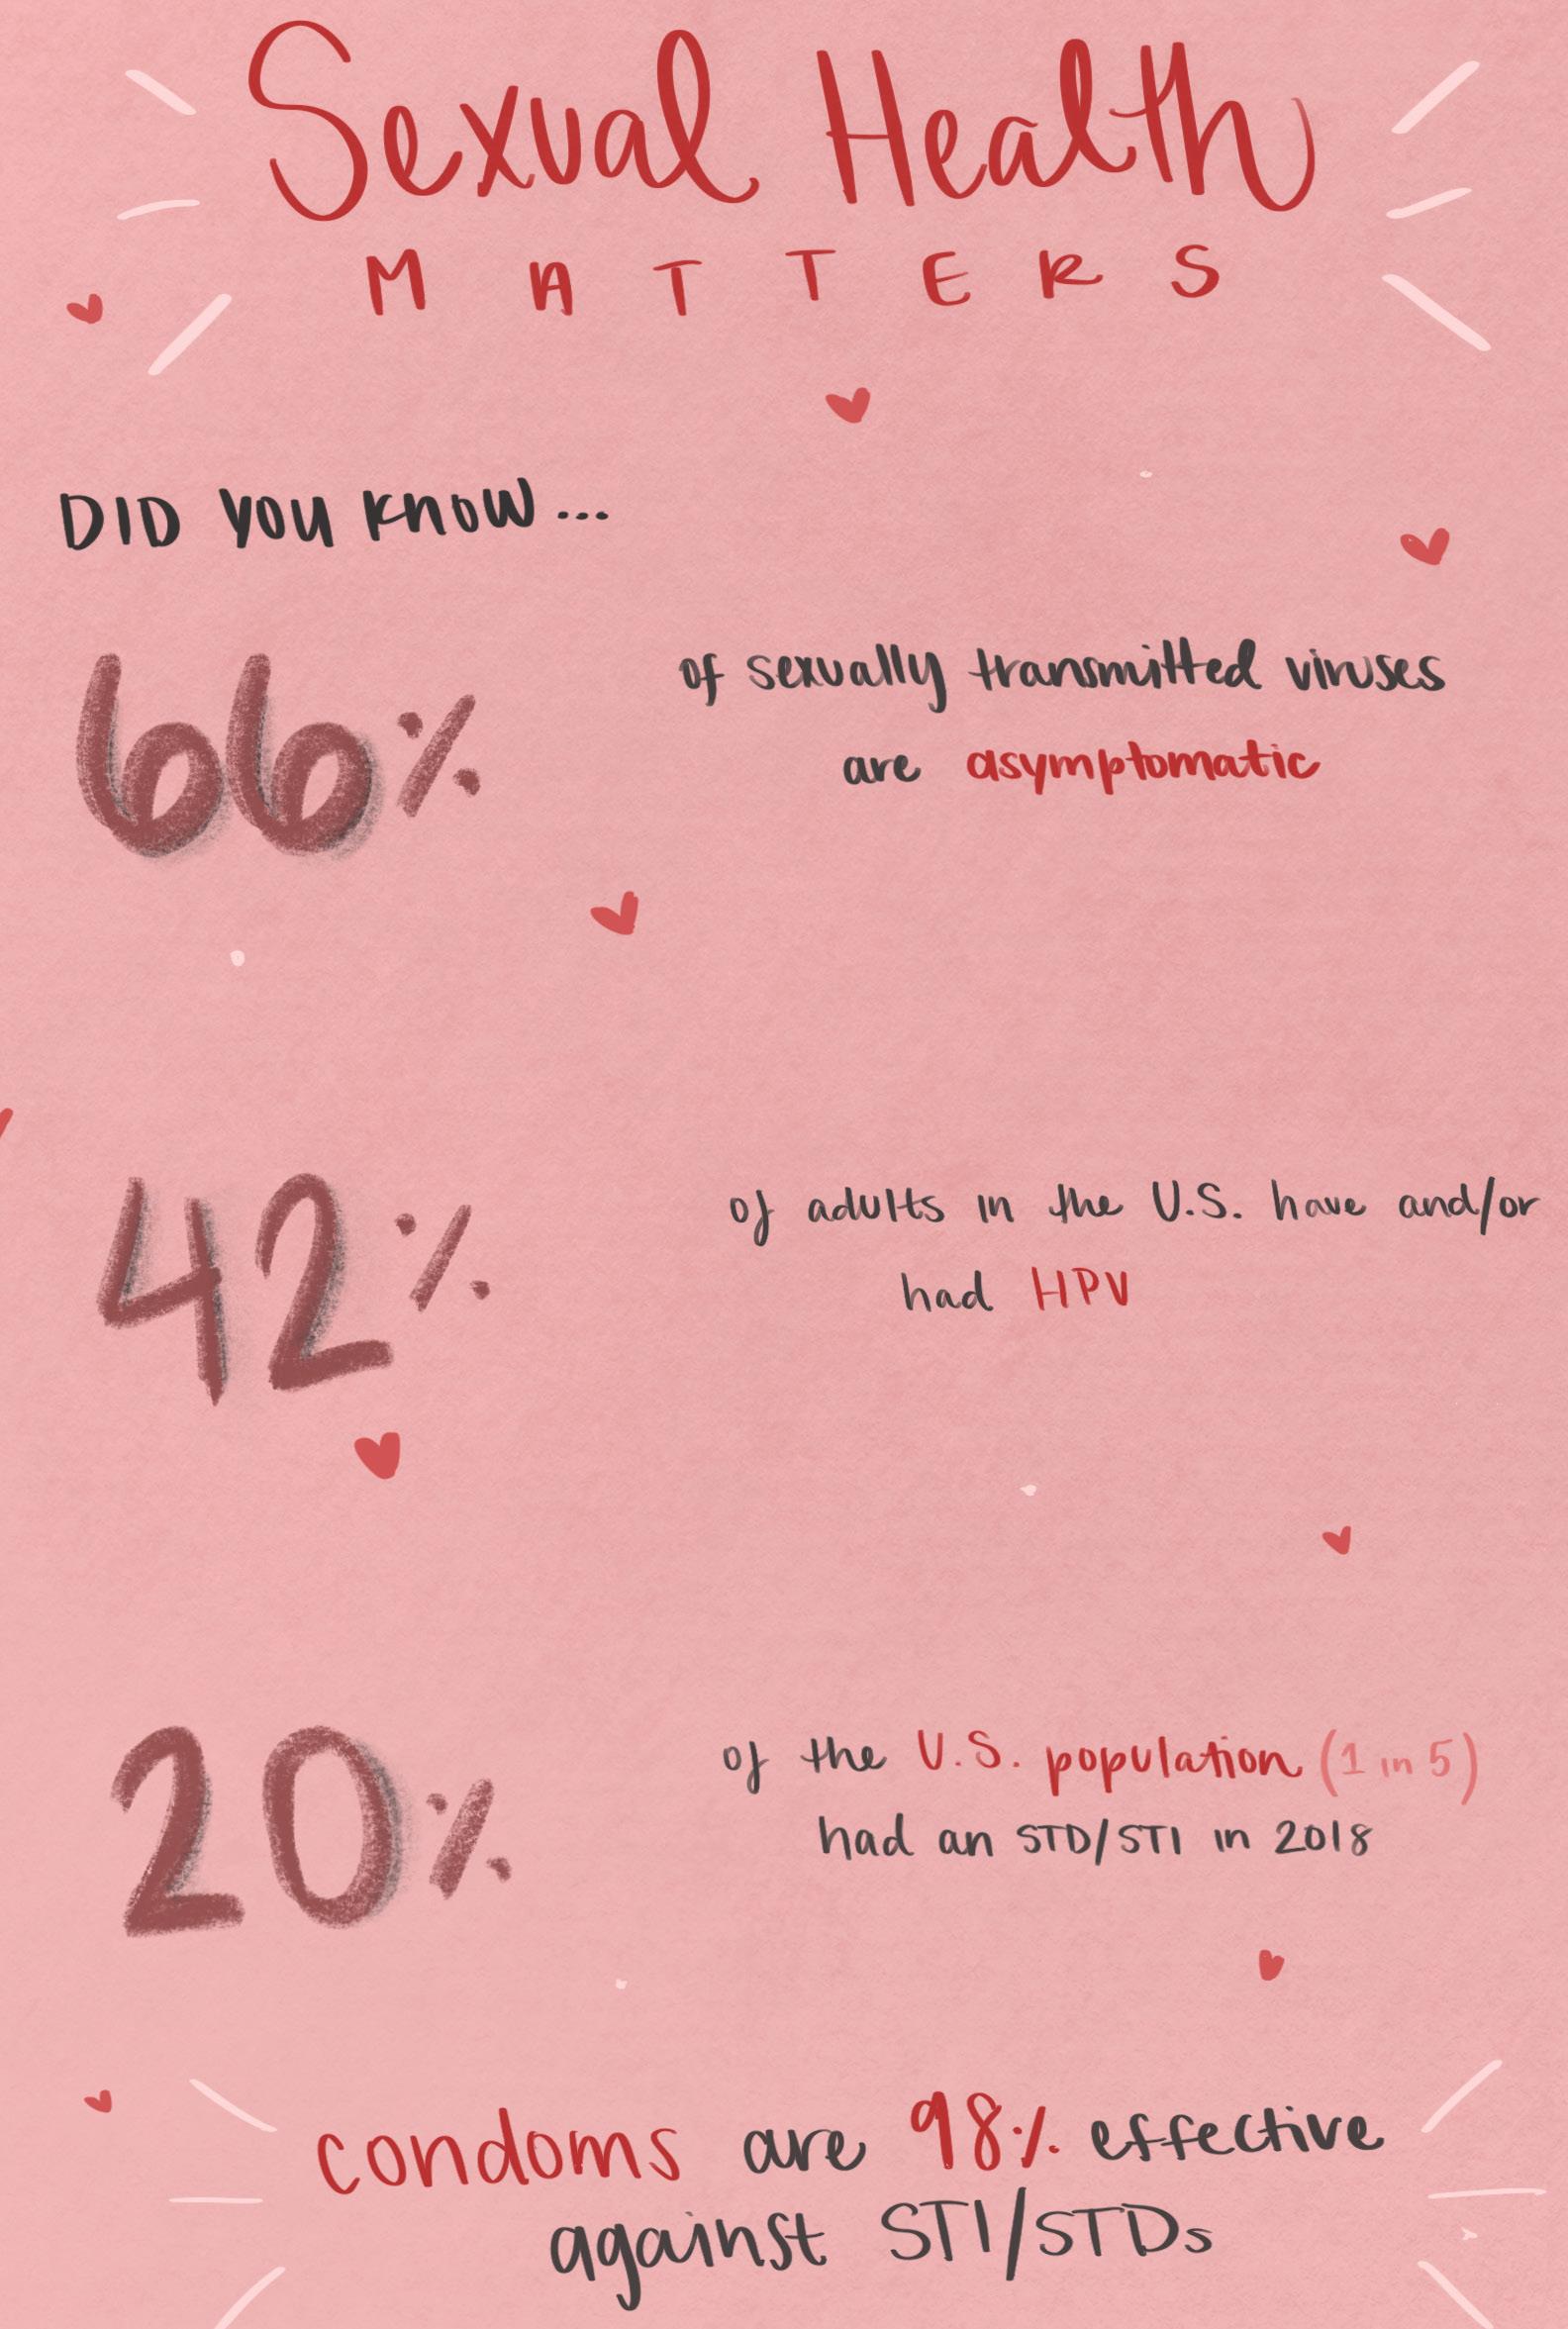 Sexual Health
MATTERS
DID YOU KNOW...
66%
of sexually transmitted viruses
are asymptomatic
42%
of adults in the U.S. have and/or
had HPV
20%
of the U.S. population (1 in 5)
had an STD/STI in 2018
condoms are 98% effective
against STI/STDs